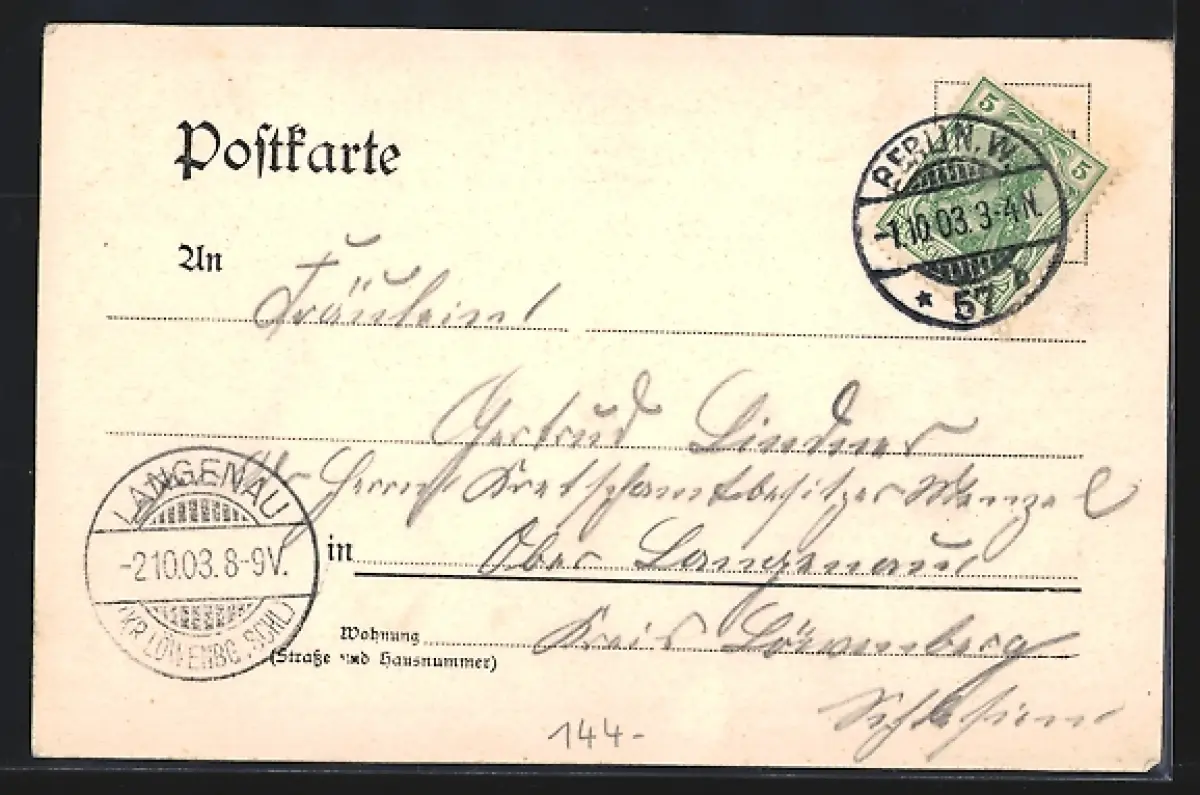 Postkarte
5
5
BERLIN. W.
-1.10.03. 3-4 N.
* 57 b
An Fräulein
Gertrud Lindner
Herrn Kretschambesitzer Menzel
in Ober Langenau
Wohnung Kreis Löwenberg
(Straße und Hausnummer)
Schlesien
LANGENAU
-2.10.03. 8-9V.
(KR. LÖWENBG. SCHL.)
144-